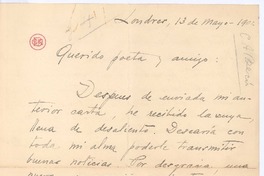 Londres, 13 de Mayo - 190
Querido poeta y amigo:
Despues de enviada mi an-
terior carta, he recibido la suya,
llena de desaliento. Desearía con
toda mi alma poderle transmitir
buenas noticias. Por desgracia, una